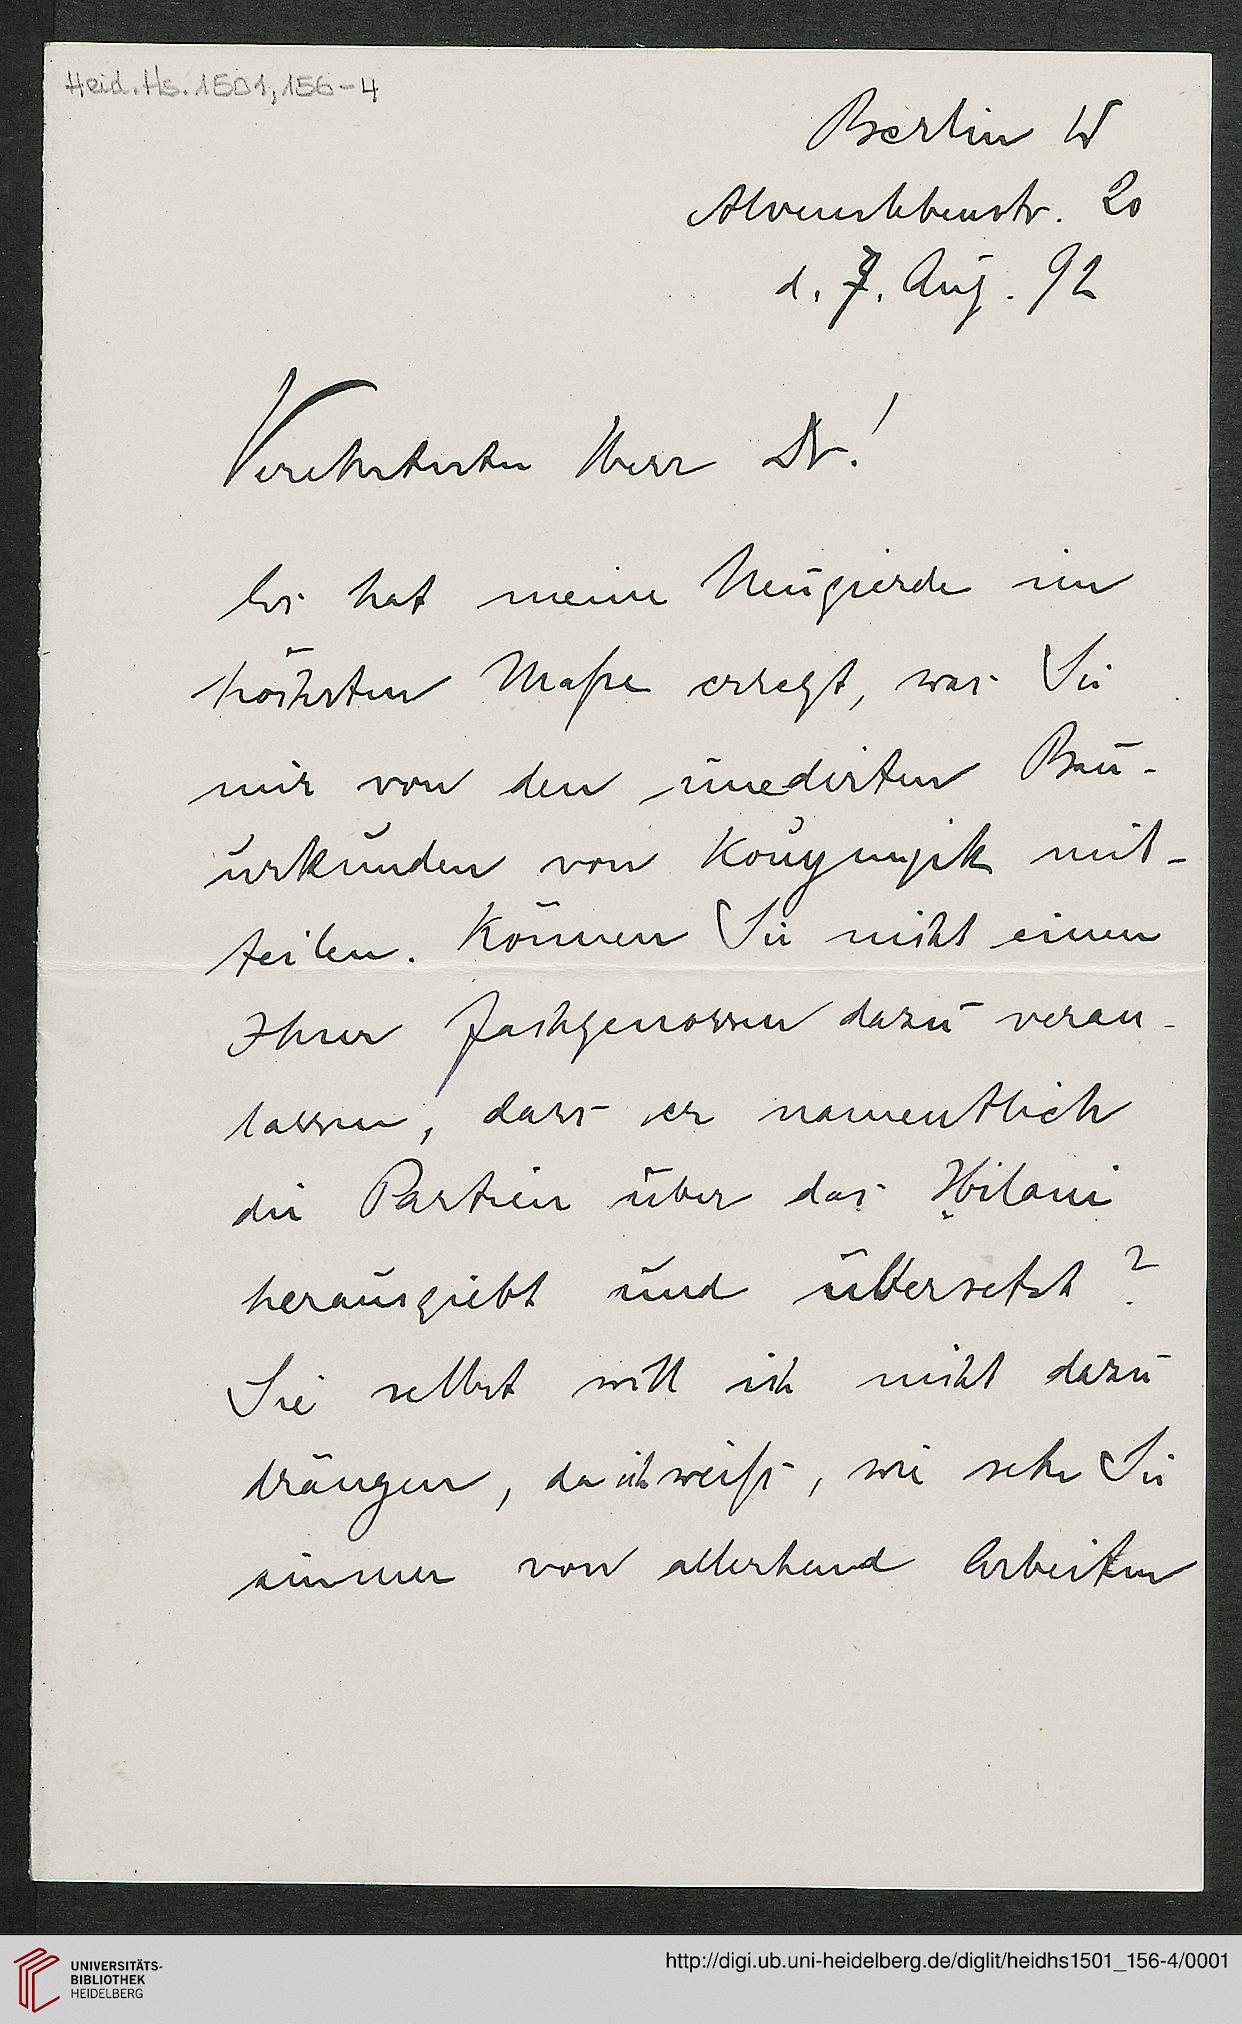 Heid. Hs. 1501, 156-4
Berlin W
Alvenslebenstr. 20
d. 7. Aug. 92
Verehrtester Herr Dr!
Es hat meine Neugierde im
höchsten Maße erregt, was Sie
mir von den unedirten Bau-
urkunden von Kouyunjik mit-
teilen. Können Sie nicht einen
Ihrer Fachgenossen dazu veran-
lassen, dass er namentlich
die Partien über das Ḫilani
herausgiebt und übersetzt?
Sie selbst will ich nicht dazu
drängen, da ich weiß, wie sehr Sie
immer von allerhand Arbeiten
UNIVERSITÄTS-
BIBLIOTHEK
HEIDELBERG
http://digi.ub.uni-heidelberg.de/diglit/heidhs1501_156-4/0001